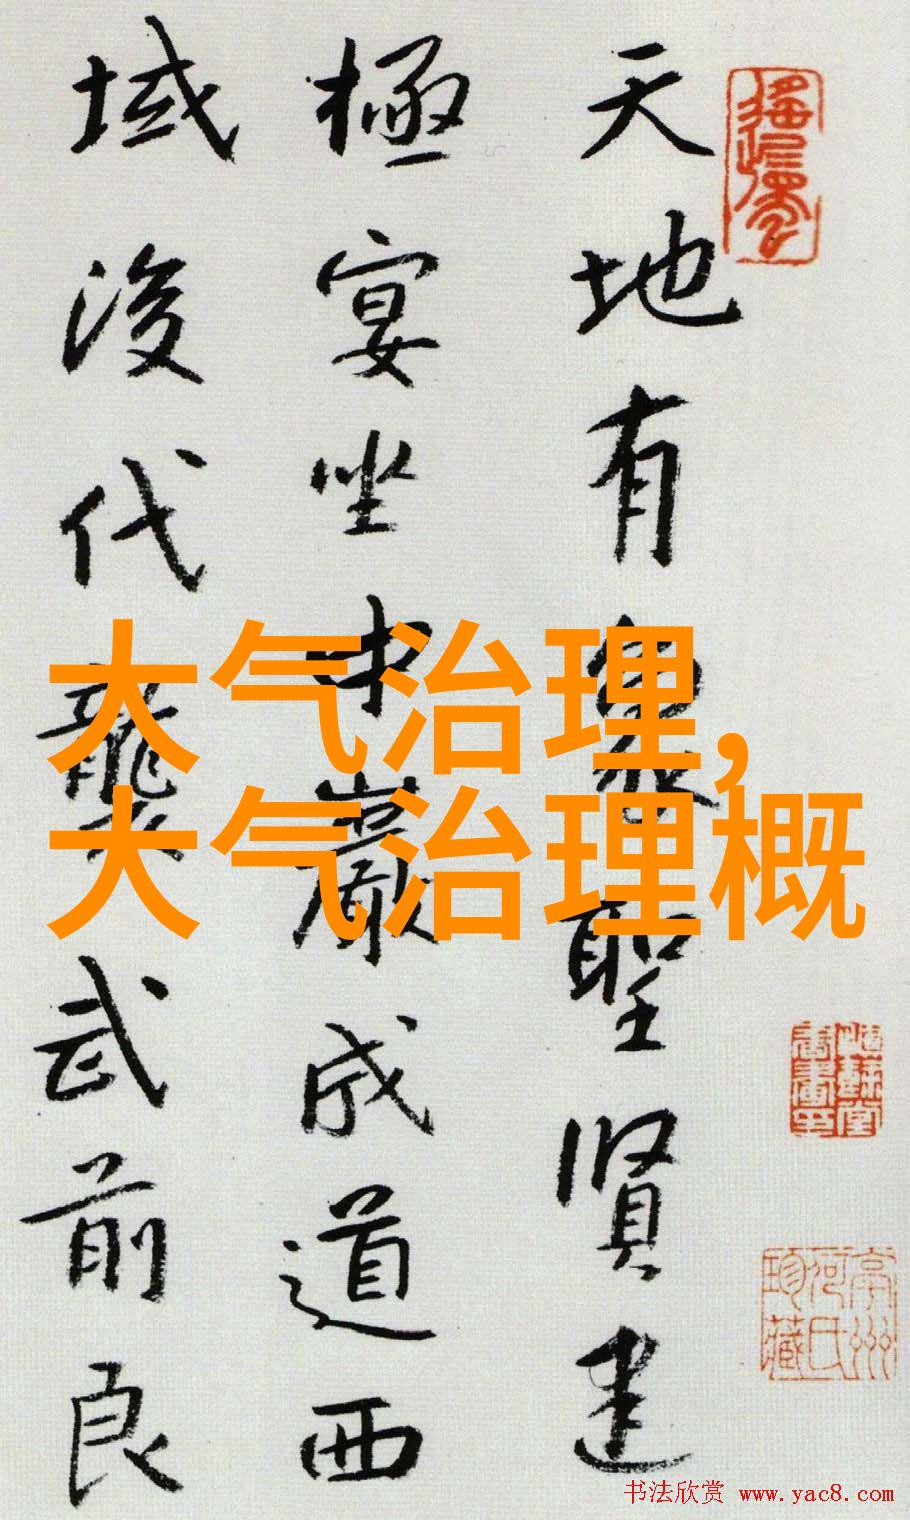 天地有象聖賢建
極宴坐中巖成道西
域後代襲武前良
大气治理,
大气治理概
书法欣赏 www.yac8.com